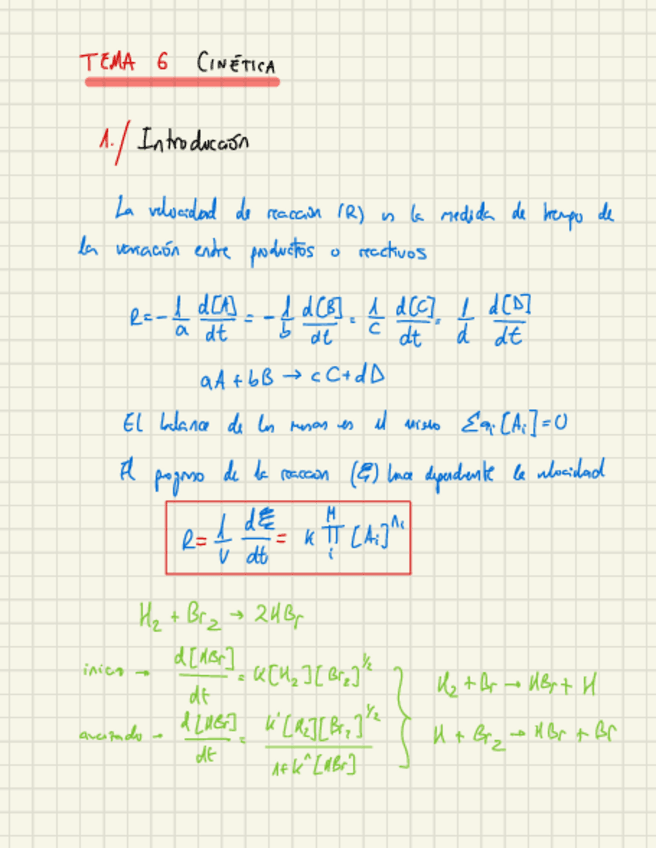 TEMA 6 CINÉTICA
1./ Introducción
La velocidad de reacción (R) es la medida de tiempo de
la variación entre productos o reactivos
R=-1/a d[A]/dt = -1/b d[B]/dt = 1/c d[C]/dt = 1/d d[D]/dt
aA + bB → cC + dD
El balance de las masas es el mismo Σai[Ai]=0
El progreso de la reacción (ξ) hace dependiente la velocidad
R = 1/V dξ/dt = k ∏ᵢᴹ [Ai]ⁿⁱ
H₂ + Br₂ → 2HBr
inicio → d[HBr]/dt = k[H₂][Br₂]^1/2
H₂ + Br → HBr + H
avanzado → d[HBr]/dt = k'[H₂][Br₂]^1/2 / 1+k^[HBr]
H + Br₂ → HBr + Br